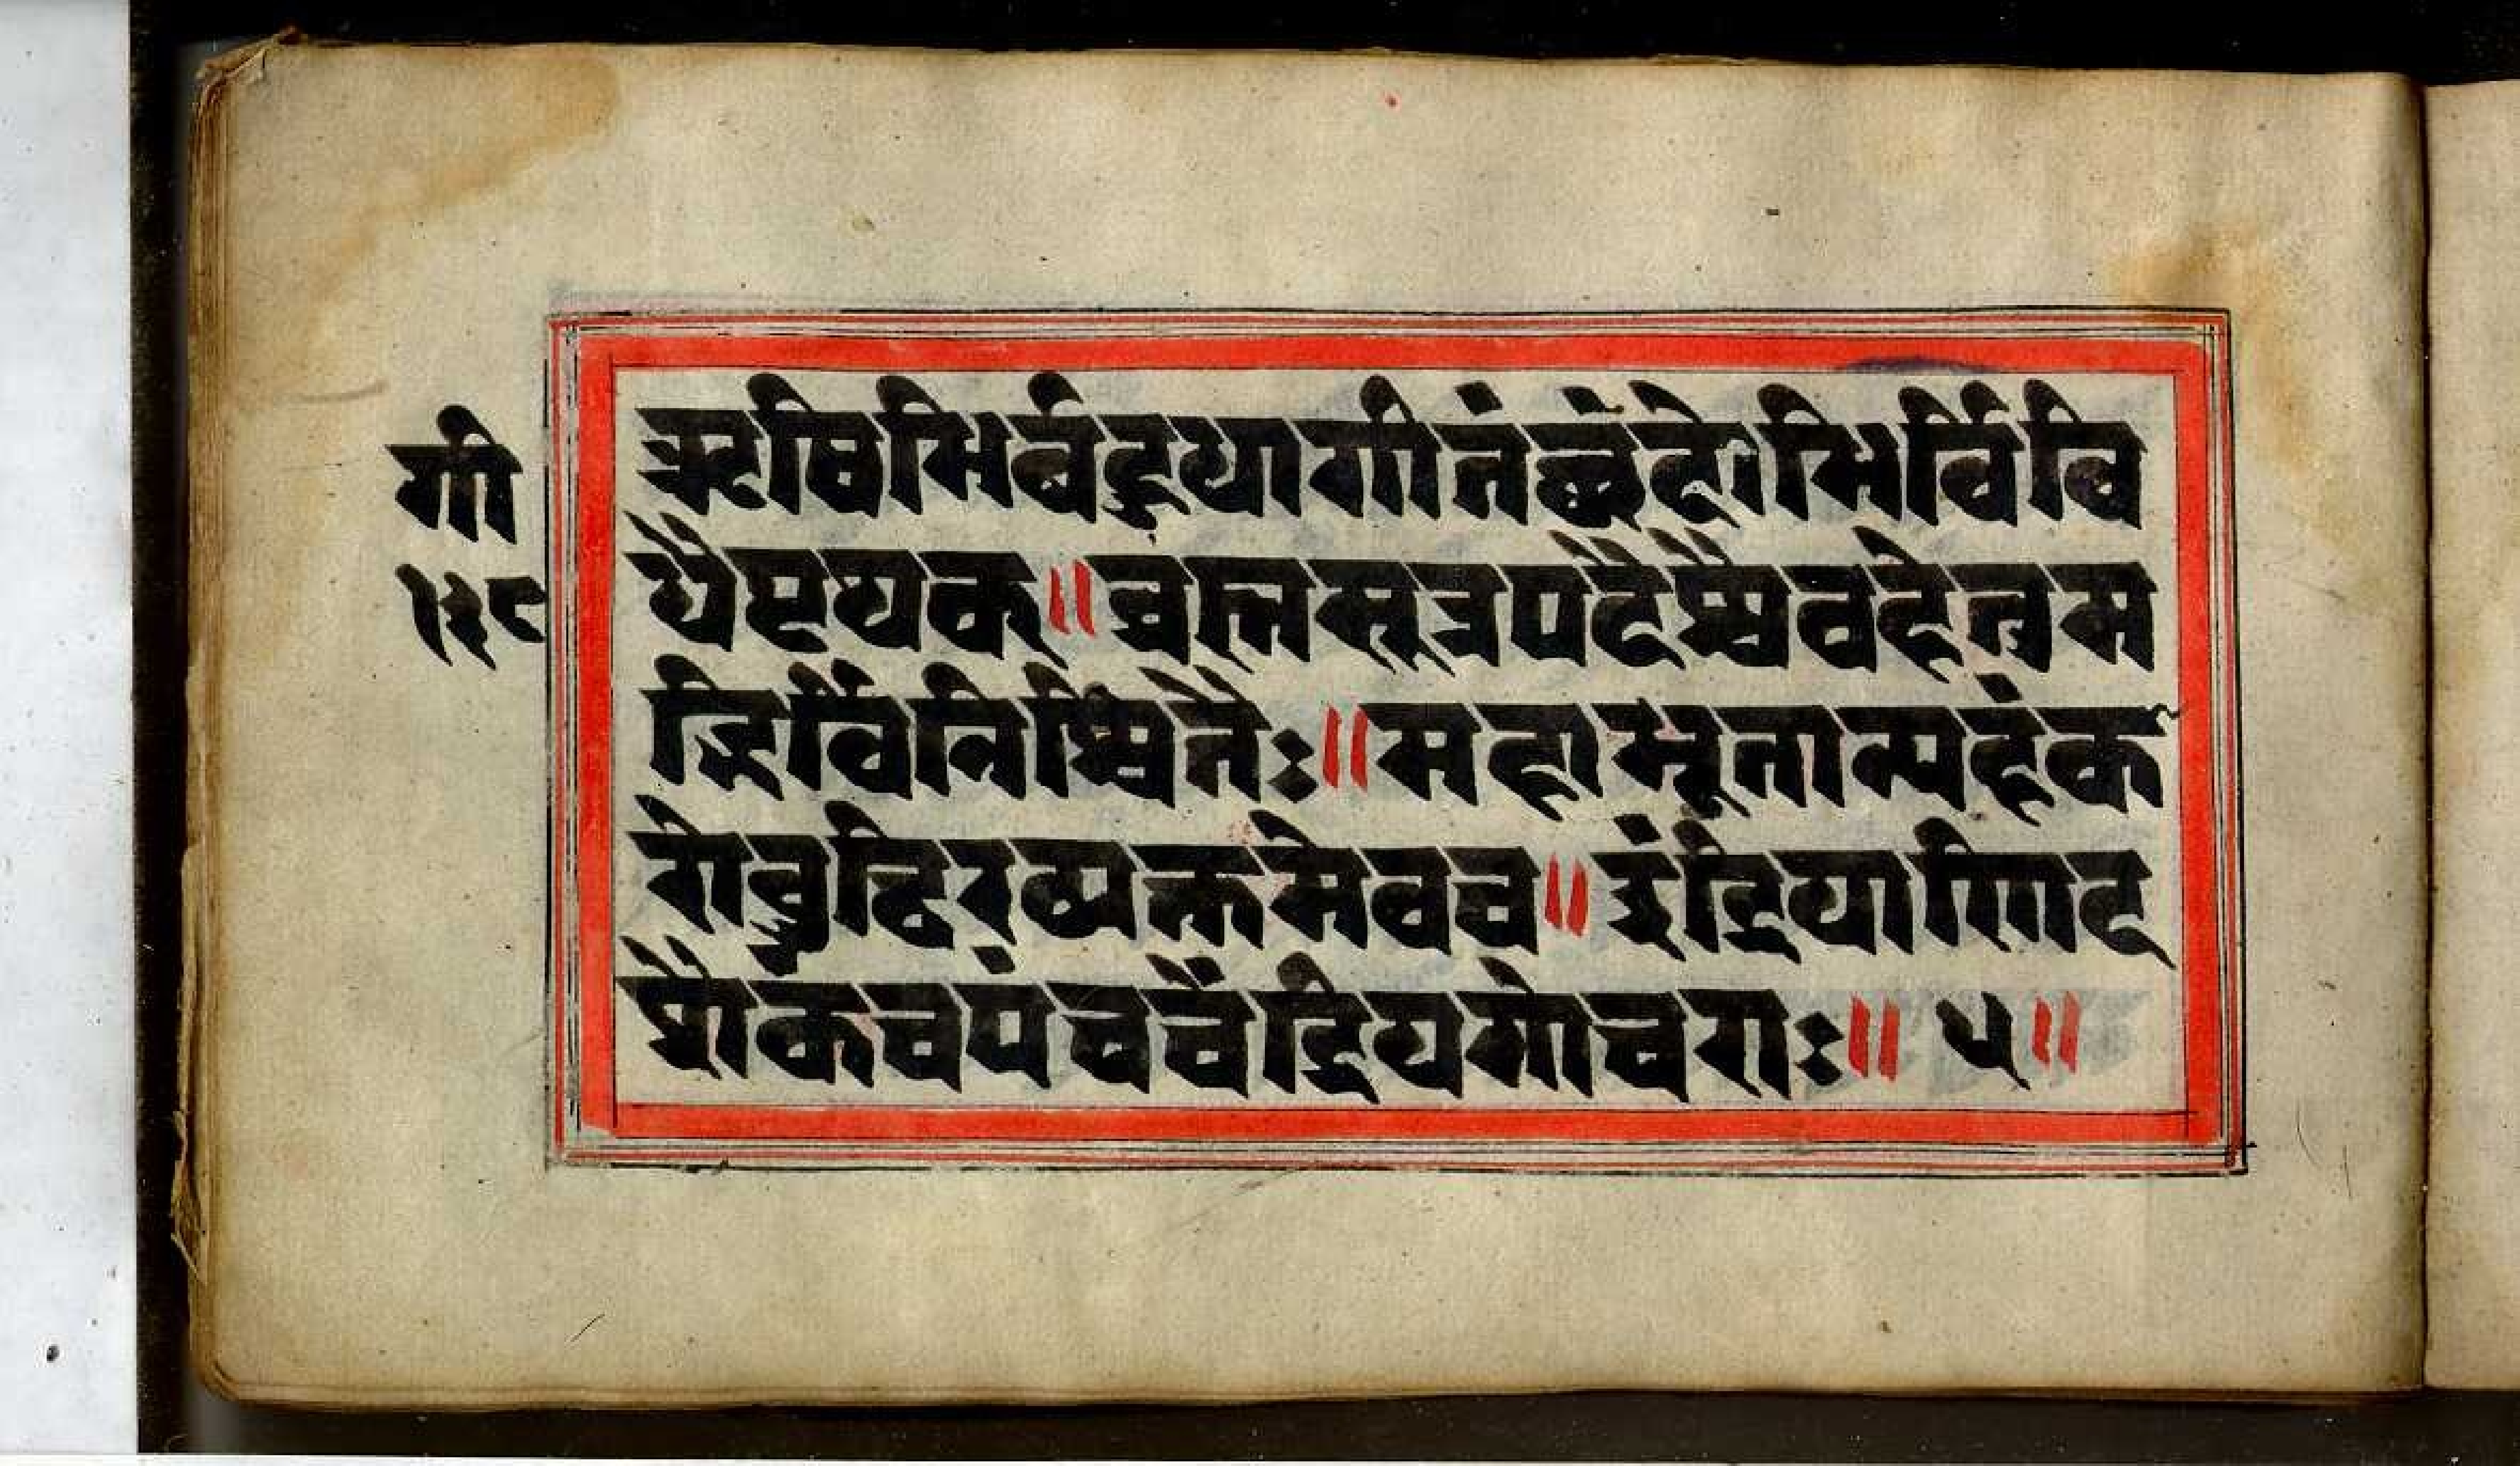 गी
१३८
ऋषिभिर्बहुधागीतंछंदोभिर्विवि
धैःपृथक्॥ब्रह्मसूत्रपदैश्चैवहेतुम
द्भिर्विनिश्चितैः॥महाभूतान्यहंका
रोबुद्धिरव्यक्तमेवच॥इंद्रियाणिद
शैकंचपंचचेंद्रियगोचराः॥५॥